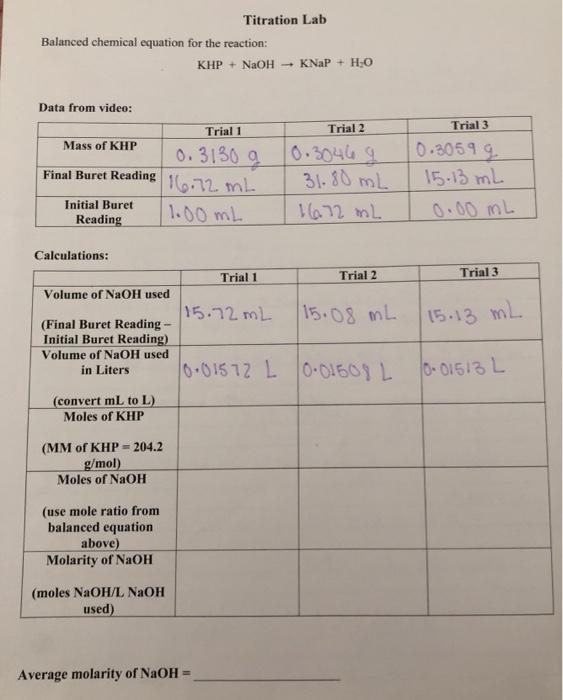 Titration Lab
Balanced chemical equation for the reaction:
KHP + NaOH → KNaP + H₂O
Data from video:
Trial 1 Trial 2 Trial 3
Mass of KHP 0.3130 g 0.3046 g 0.3059 g
Final Buret Reading 16.72 mL 31.80 mL 15.13 mL
Initial Buret
Reading 1.00 mL 16.72 mL 0.00 mL
Calculations:
Trial 1 Trial 2 Trial 3
Volume of NaOH used
15.72 mL 15.08 mL 15.13 mL
(Final Buret Reading –
Initial Buret Reading)
Volume of NaOH used
in Liters 0.01572 L 0.01508 L 0.01513 L
(convert mL to L)
Moles of KHP
(MM of KHP = 204.2
g/mol)
Moles of NaOH
(use mole ratio from
balanced equation
above)
Molarity of NaOH
(moles NaOH/L NaOH
used)
Average molarity of NaOH =